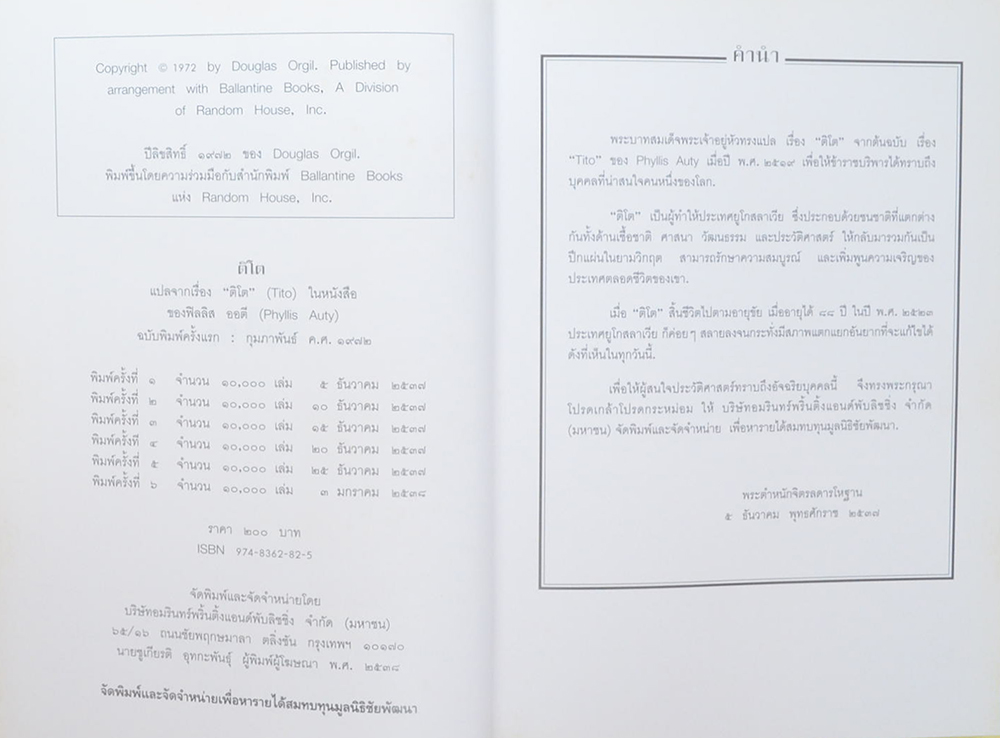 Copyright © 1972 by Douglas Orgil. Published by
arrangement with Ballantine Books, A Division
of Random House, Inc.
ปีลิขสิทธิ์ ๑๙๗๒ ของ Douglas Orgil.
พิมพ์ขึ้นโดยความร่วมมือกับสำนักพิมพ์ Ballantine Books
แห่ง Random House, Inc.
ติโต
แปลจากเรื่อง "ติโต" (Tito) ในหนังสือ
ของฟิลลิส ออตี (Phyllis Auty)
ฉบับพิมพ์ครั้งแรก : กุมภาพันธ์ ค.ศ. ๑๙๗๒
พิมพ์ครั้งที่ ๑ จำนวน ๑๐,๐๐๐ เล่ม ๕ ธันวาคม ๒๕๓๗
พิมพ์ครั้งที่ ๒ จำนวน ๑๐,๐๐๐ เล่ม ๑๐ ธันวาคม ๒๕๓๗
พิมพ์ครั้งที่ ๓ จำนวน ๑๐,๐๐๐ เล่ม ๑๕ ธันวาคม ๒๕๓๗
พิมพ์ครั้งที่ ๔ จำนวน ๑๐,๐๐๐ เล่ม ๒๐ ธันวาคม ๒๕๓๗
พิมพ์ครั้งที่ ๕ จำนวน ๑๐,๐๐๐ เล่ม ๒๕ ธันวาคม ๒๕๓๗
พิมพ์ครั้งที่ ๖ จำนวน ๑๐,๐๐๐ เล่ม ๓ มกราคม ๒๕๓๘
ราคา ๒๐๐ บาท
ISBN 974-8362-82-5
จัดพิมพ์และจัดจำหน่ายโดย
บริษัทอมรินทร์พริ้นติ้งแอนด์พับลิชชิ่ง จำกัด (มหาชน)
๖๕/๑๖ ถนนชัยพฤกษมาลา ตลิ่งชัน กรุงเทพฯ ๑๐๑๗๐
นายชูเกียรติ อุทกะพันธุ์ ผู้พิมพ์ผู้โฆษณา พ.ศ. ๒๕๓๘
จัดพิมพ์และจัดจำหน่ายเพื่อหารายได้สมทบทุนมูลนิธิชัยพัฒนา
คำนำ
พระบาทสมเด็จพระเจ้าอยู่หัวทรงแปล เรื่อง "ติโต" จากต้นฉบับ เรื่อง
"Tito" ของ Phyllis Auty เมื่อปี พ.ศ. ๒๕๑๙ เพื่อให้ข้าราชบริพารได้ทราบถึง
บุคคลที่น่าสนใจคนหนึ่งของโลก.
"ติโต" เป็นผู้ทำให้ประเทศยูโกสลาเวีย ซึ่งประกอบด้วยชนชาติที่แตกต่าง
กันทั้งด้านเชื้อชาติ ศาสนา วัฒนธรรม และประวัติศาสตร์ ให้กลับมารวมกันเป็น
ปึกแผ่นในยามวิกฤต สามารถรักษาความสมบูรณ์ และเพิ่มพูนความเจริญของ
ประเทศตลอดชีวิตของเขา.
เมื่อ "ติโต" สิ้นชีวิตไปตามอายุขัย เมื่ออายุได้ ๘๘ ปี ในปี พ.ศ. ๒๕๒๓
ประเทศยูโกสลาเวีย ก็ค่อยๆ สลายลงจนกระทั่งมีสภาพแตกแยกอันยากที่จะแก้ไขได้
ดังที่เห็นในทุกวันนี้.
เพื่อให้ผู้สนใจประวัติศาสตร์ทราบถึงอัจฉริยบุคคลนี้ จึงทรงพระกรุณา
โปรดเกล้าโปรดกระหม่อม ให้ บริษัทอมรินทร์พริ้นติ้งแอนด์พับลิชชิ่ง จำกัด
(มหาชน) จัดพิมพ์และจัดจำหน่าย เพื่อหารายได้สมทบทุนมูลนิธิชัยพัฒนา.
พระตำหนักจิตรลดารโหฐาน
๕ ธันวาคม พุทธศักราช ๒๕๓๗